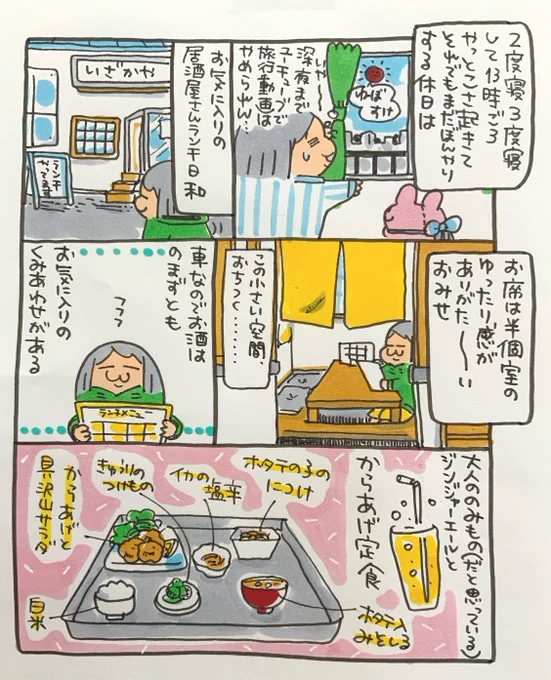 2度寝3度寝
して13時ごろ
やっとこさ起きて
それでもまだぼんやり
する休日は
ねぼ
すけ
いや〜
深夜まで
ユーチューブで
旅行動画は
やめられん…
お気に入りの
居酒屋さんランチ日和
いざかや
ランチ
やってます
お席は半個室の
ゆったり感が
ありがた〜〜い
おみせ
この小さい空間、
おちつく………
車なのでお酒は
のまずとも
お気に入りの
くみあわせがある
フフフ
ランチメニュー
大人ののみもの(だと思っている)
ジンジャーエールと
からあげ定食
ホタテの子の
につけ
イカの
塩辛
きゅうりの
つけもの
からあげと
具沢山サラダ
白米
ホタテ入
みそしる